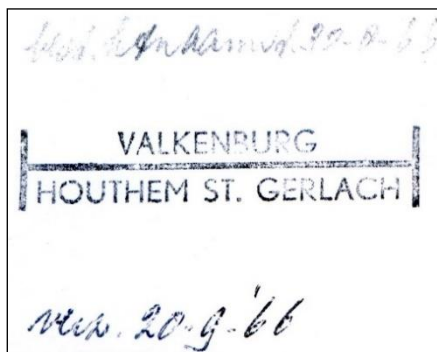 20-9-66
VALKENBURG
HOUTHEM ST. GERLACH
verz. 20-9-'66